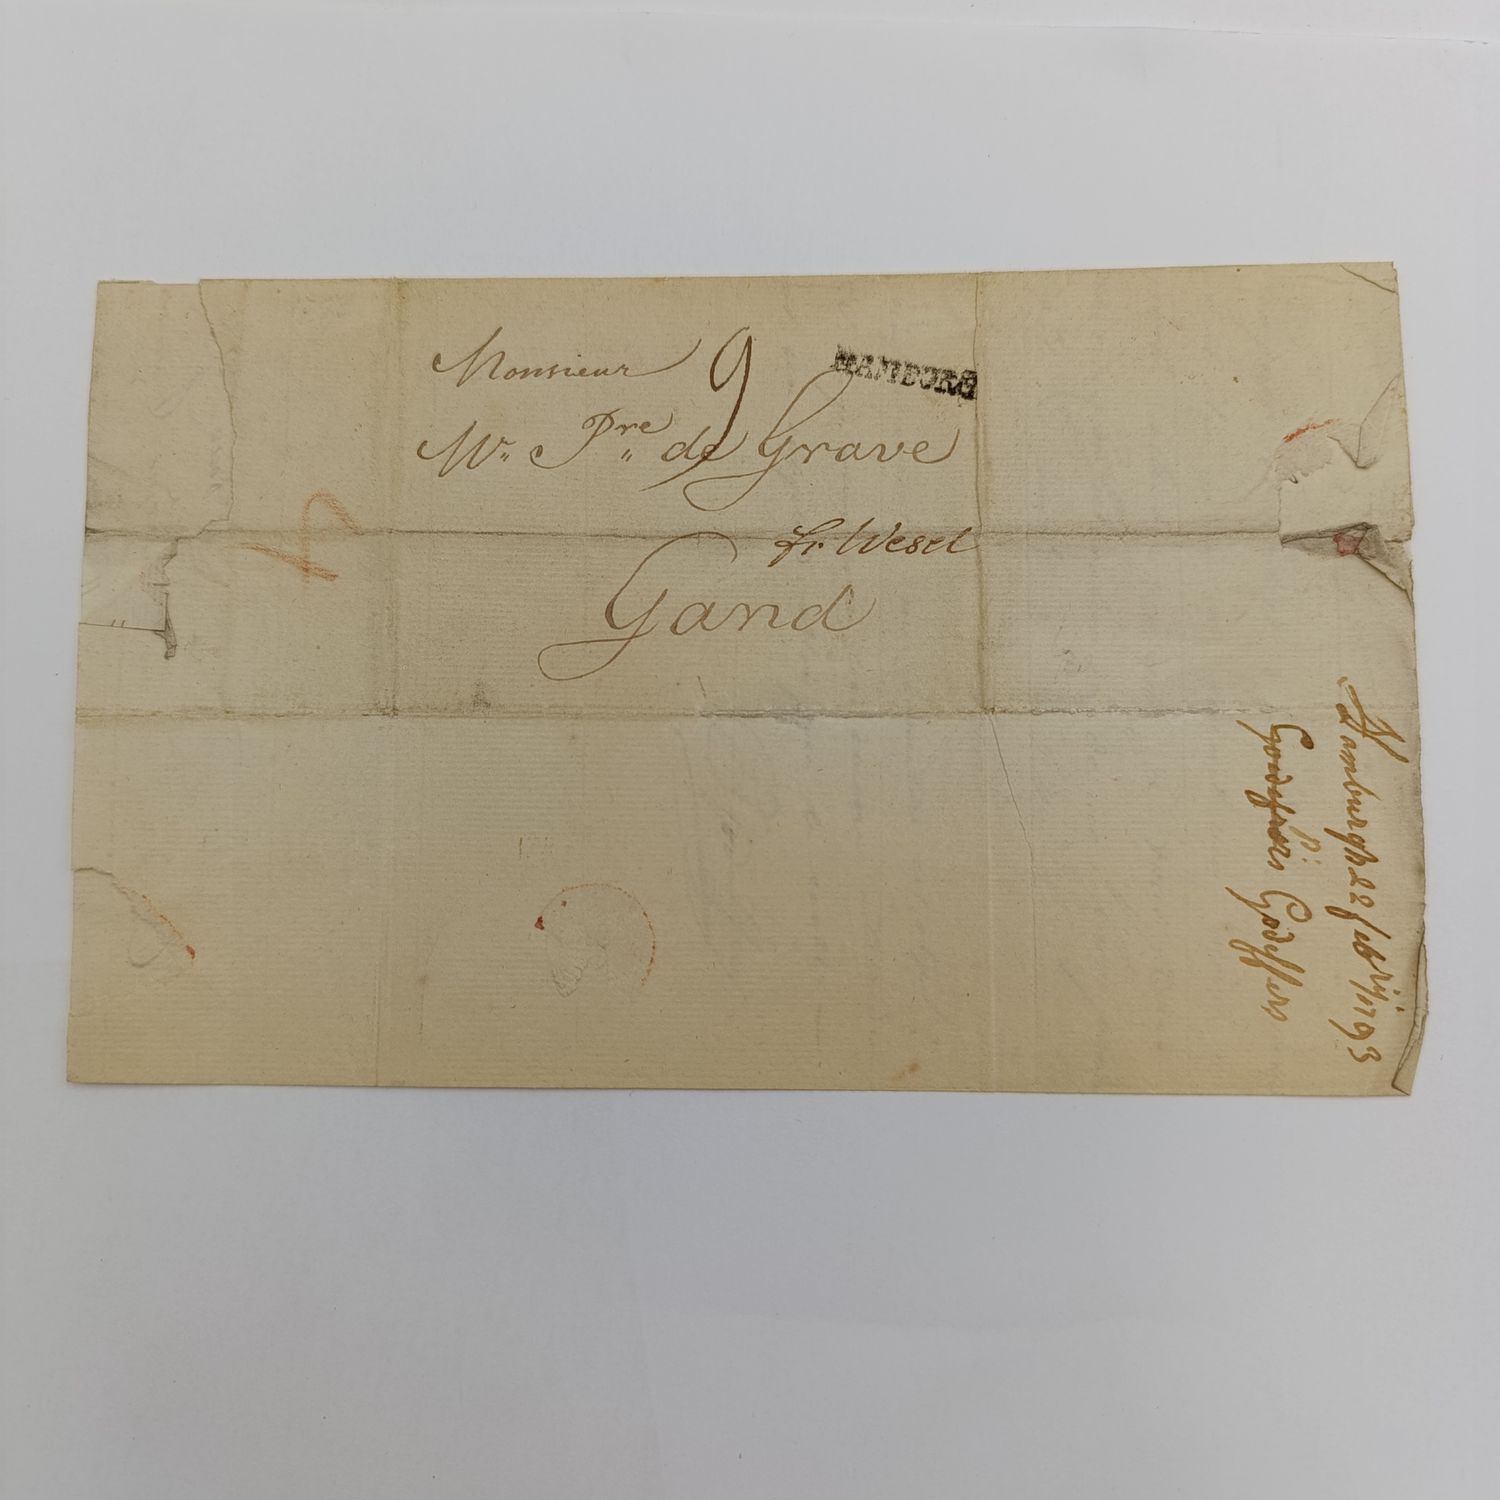 Monsieur 9 HAMBURG
Mr. Pre. de Grave
fr. Wesel
Gand
Hamburgh 22 febrij 1793
Godeffroi